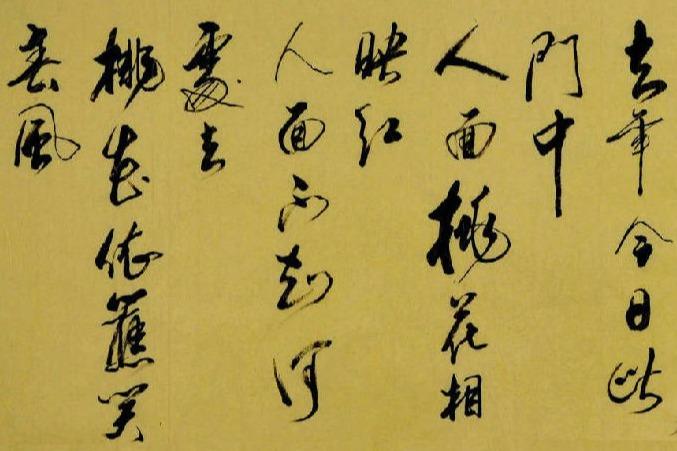 去年今日此
門中
人面桃花相
映红
人面不知何
處去
桃花依舊笑
春風